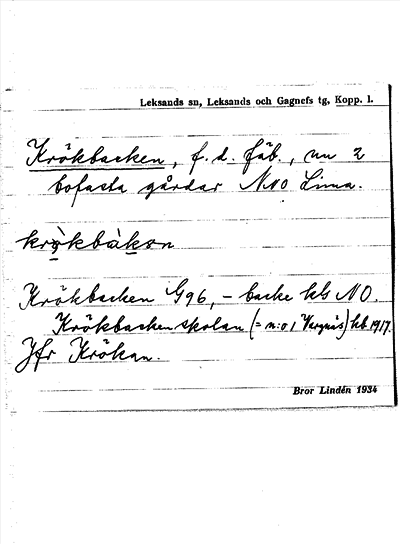 Leksands sn, Leksands och Gagnefs tg, Kopp. l.
Krökbacken, f. d. fäb., nu 2
bofasta gårdar NNO Lima.
Krökbacken G96, – backe kls NO.
Krökbackenskolan (= n:o 1 Vargnäs) kb 1917.
Jfr Krökan.
Bror Lindén 1934